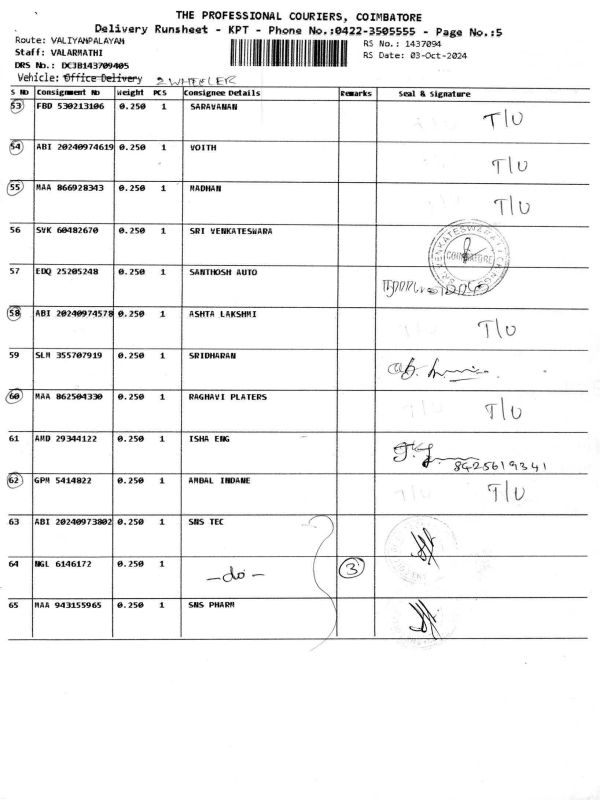 THE PROFESSIONAL COURIERS, COIMBATORE
Delivery Runsheet - KPT - Phone No.:0422-3505555 - Page No.:5
Route: VALIYAMPALAYAM
RS No.: 1437094
Staff: VALARMATHI
RS Date: 03-Oct-2024
DRS No.: DCJB143709405
Vehicle: Office Delivery 2 WHEELER
S No Consignment No Weight PCS Consignee Details Remarks Seal & Signature
53 FBD 530213106 0.250 1 SARAVANAN T/U
54 ABI 20240974619 0.250 1 VOITH T/U
55 MAA 866928343 0.250 1 MADHAN T/U
56 SVK 60482670 0.250 1 SRI VENKATESWARA
COIMBATORE
57 EDQ 25205248 0.250 1 SANTHOSH AUTO
58 ABI 20240974578 0.250 1 ASHTA LAKSHMI T/U
59 SLM 355707919 0.250 1 SRIDHARAN
60 MAA 862504330 0.250 1 RAGHAVI PLATERS T/U
61 AMD 29344122 0.250 1 ISHA ENG
8425619341
62 GPM 5414822 0.250 1 AMBAL INDANE T/U
63 ABI 20240973802 0.250 1 SNS TEC
64 NGL 6146172 0.250 1 -do- 3
65 MAA 943155965 0.250 1 SNS PHARM